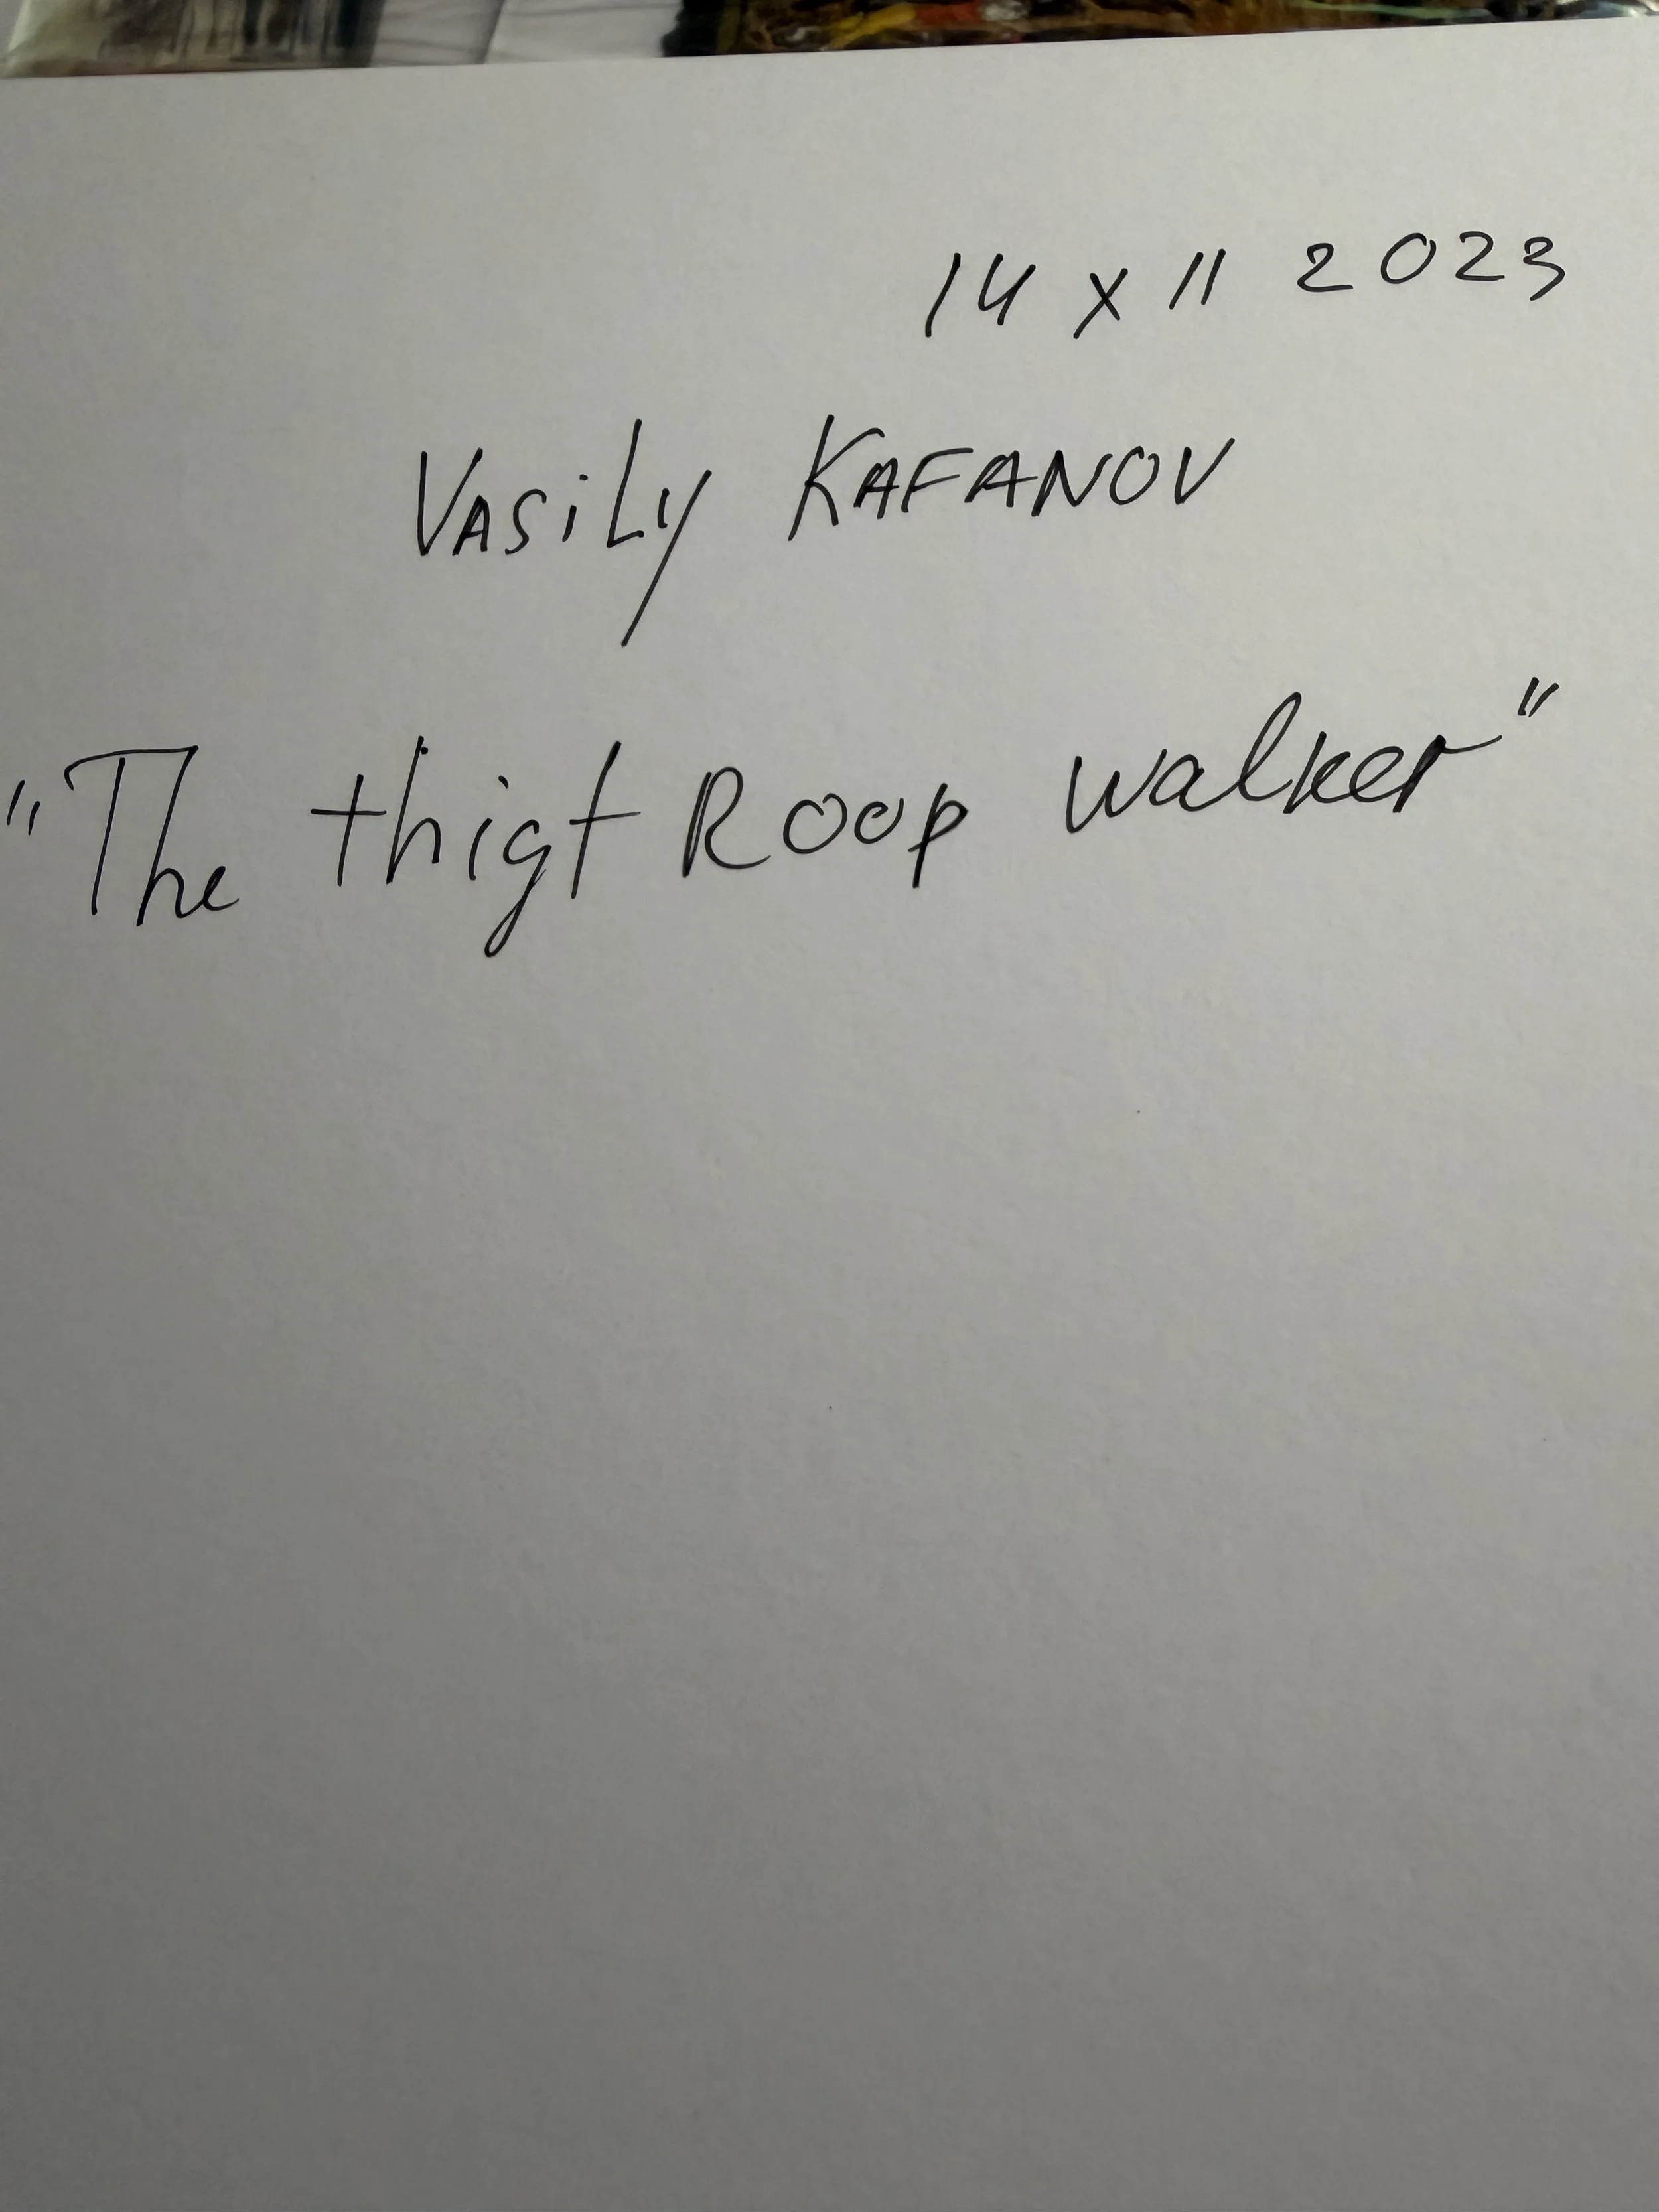 14 x 11 2023
VASiLy KAFANOV
"The thigt Roop walker"